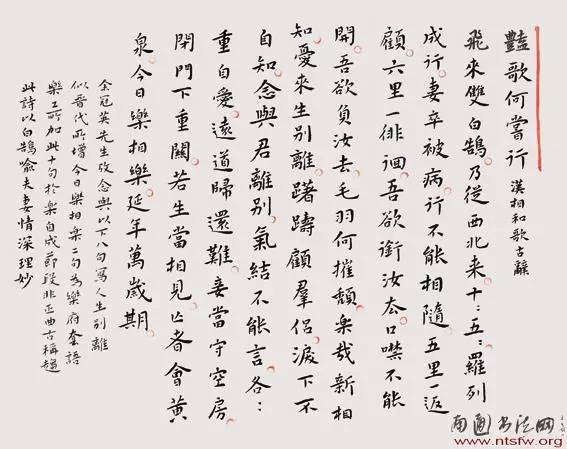 豔歌何嘗行 漢相和歌古辭
飛來雙白鵠乃從西北来十:五:羅列
成行妻卒被病行不能相隨五里一返
顧六里一徘徊吾欲銜汝去口噤不能
開吾欲負汝去毛羽何摧頹樂哉新相
知憂來生别離躇躊顧羣侶淚下不
自知念與君離别氣結不能言各:
重自愛遠道歸還難妾當守空房
閉門下重關若生當相見亡者會黄
泉今日樂相樂延年萬歲期
余冠英先生攷念與以下八句寫人生别離
似晋代所增今日樂相樂二句为樂府套語
樂工所加此十句於樂自成節段非正曲古稱趨
此詩以白鵠喻夫妻情深理妙
南通书法网
www.ntsfw.org